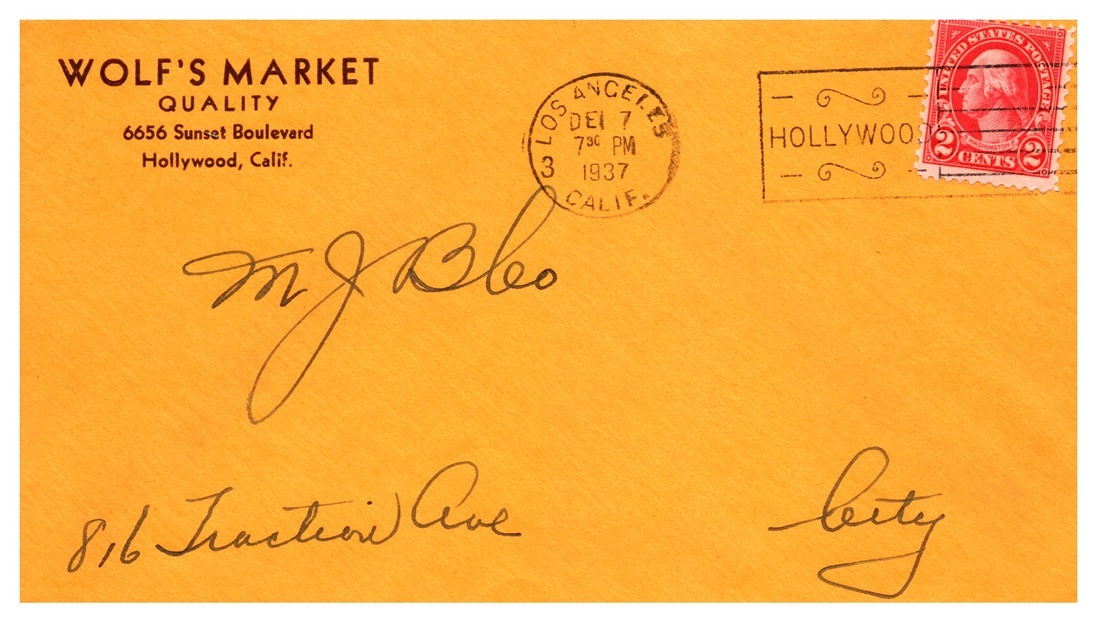 WOLF'S MARKET
QUALITY
6656 Sunset Boulevard
Hollywood, Calif.
LOS ANGELES
DEC 7
7 30 PM
1937
3
CALIF.
HOLLYWOOD
UNITED STATES POSTAGE
WASHINGTON
2 CENTS 2
M J B Co
816 Traction Ave
City